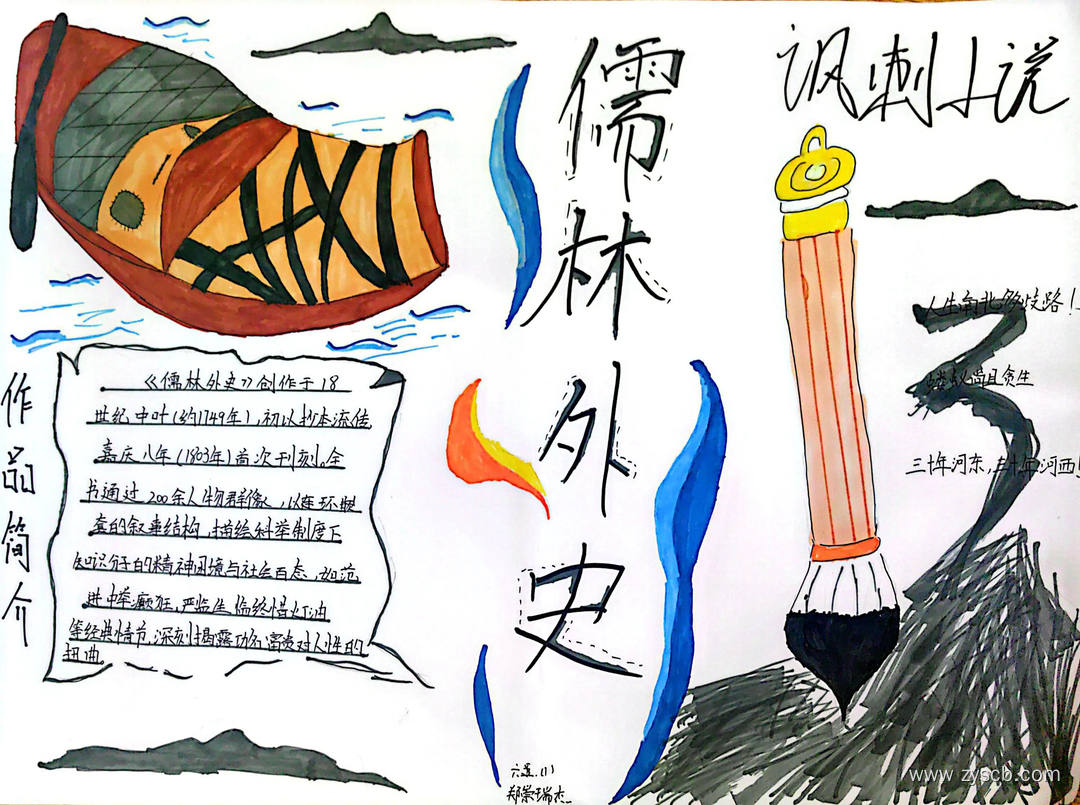 儒林外史
讽刺小说
作品简介
《儒林外史》创作于18
世纪中叶(约1749年),初以抄本流传,
嘉庆八年(1803年)首次刊刻。全
书通过200余人物群像,以连环
套的叙事结构,描绘科举制度下
知识分子的精神困境与社会百态,如范
进中举癫狂,严监生临终惜灯油
等经典情节,深刻揭露功名富贵对人性的
扭曲
人生南北多歧路!
蝼蚁尚且贪生
三十年河东,三十年河西!
六(1)
www.zyscb.com